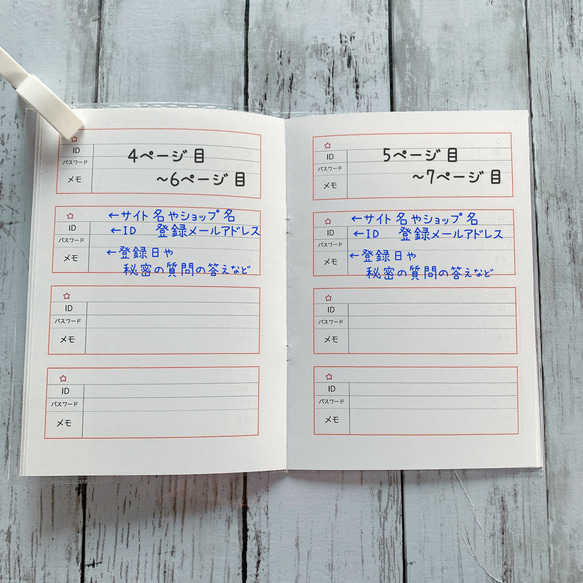 ☆
ID
パスワード
メモ
4ページ目
～6ページ目
☆
←サイト名やショップ名
ID
←ID 登録メールアドレス
パスワード
メモ
←登録日や
秘密の質問の答えなど
☆
ID
パスワード
メモ
☆
ID
パスワード
メモ
☆
ID
パスワード
メモ
5ページ目
～7ページ目
☆
←サイト名やショップ名
ID
←ID 登録メールアドレス
パスワード
メモ
←登録日や
秘密の質問の答えなど
☆
ID
パスワード
メモ
☆
ID
パスワード
メモ